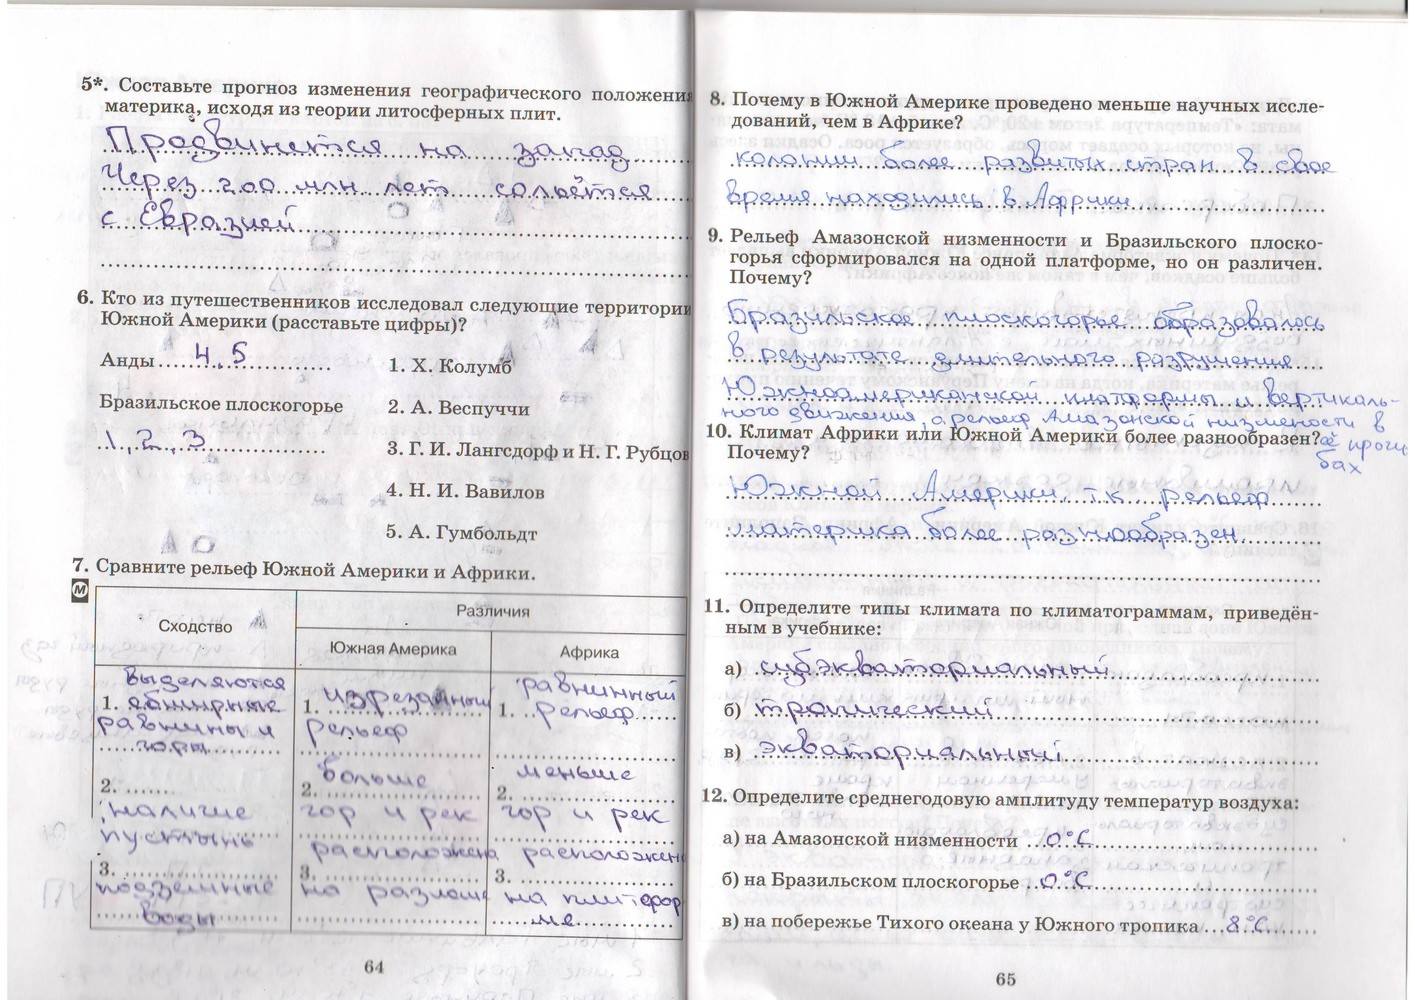 5*. Составьте прогноз изменения географического положения
материка, исходя из теории литосферных плит.
Продвинется на запад
Через 200 млн лет сольётся
с Евразией
6. Кто из путешественников исследовал следующие территории
Южной Америки (расставьте цифры)?
Анды 4, 5
1. Х. Колумб
Бразильское плоскогорье
2. А. Веспуччи
1, 2, 3
3. Г. И. Лангсдорф и Н. Г. Рубцов
4. Н. И. Вавилов
5. А. Гумбольдт
7. Сравните рельеф Южной Америки и Африки.
М
Сходство
Различия
Южная Америка
Африка
выделяются
1. обширные
равнины и
горы
1. изрезанный
рельеф
равнинный
1. рельеф
2.
наличие
пустынь
больше
2.
гор и рек
меньше
2.
гор и рек
3.
подземные
воды
расположена
3.
на разломе
расположена
3.
на платфор
ме
64
8. Почему в Южной Америке проведено меньше научных иссле-
дований, чем в Африке?
колонии более развитых стран в свое
время находились в Африки
9. Рельеф Амазонской низменности и Бразильского плоско-
горья сформировался на одной платформе, но он различен.
Почему?
Бразильское плоскогорье образовалось
в результате длительного разрушения
Южноамериканской платформы и вертикаль-
ного движения, а рельеф Амазонской низмености в
её проги
бах
10. Климат Африки или Южной Америки более разнообразен?
Почему?
Южной Америки, т.к. рельеф
материка более разнообразен
11. Определите типы климата по климатограммам, приведён-
ным в учебнике:
а) субэкваториальный
б) тропический
в) экваториальный
12. Определите среднегодовую амплитуду температур воздуха:
а) на Амазонской низменности 0°С
б) на Бразильском плоскогорье 0°С
в) на побережье Тихого океана у Южного тропика 8°С
65